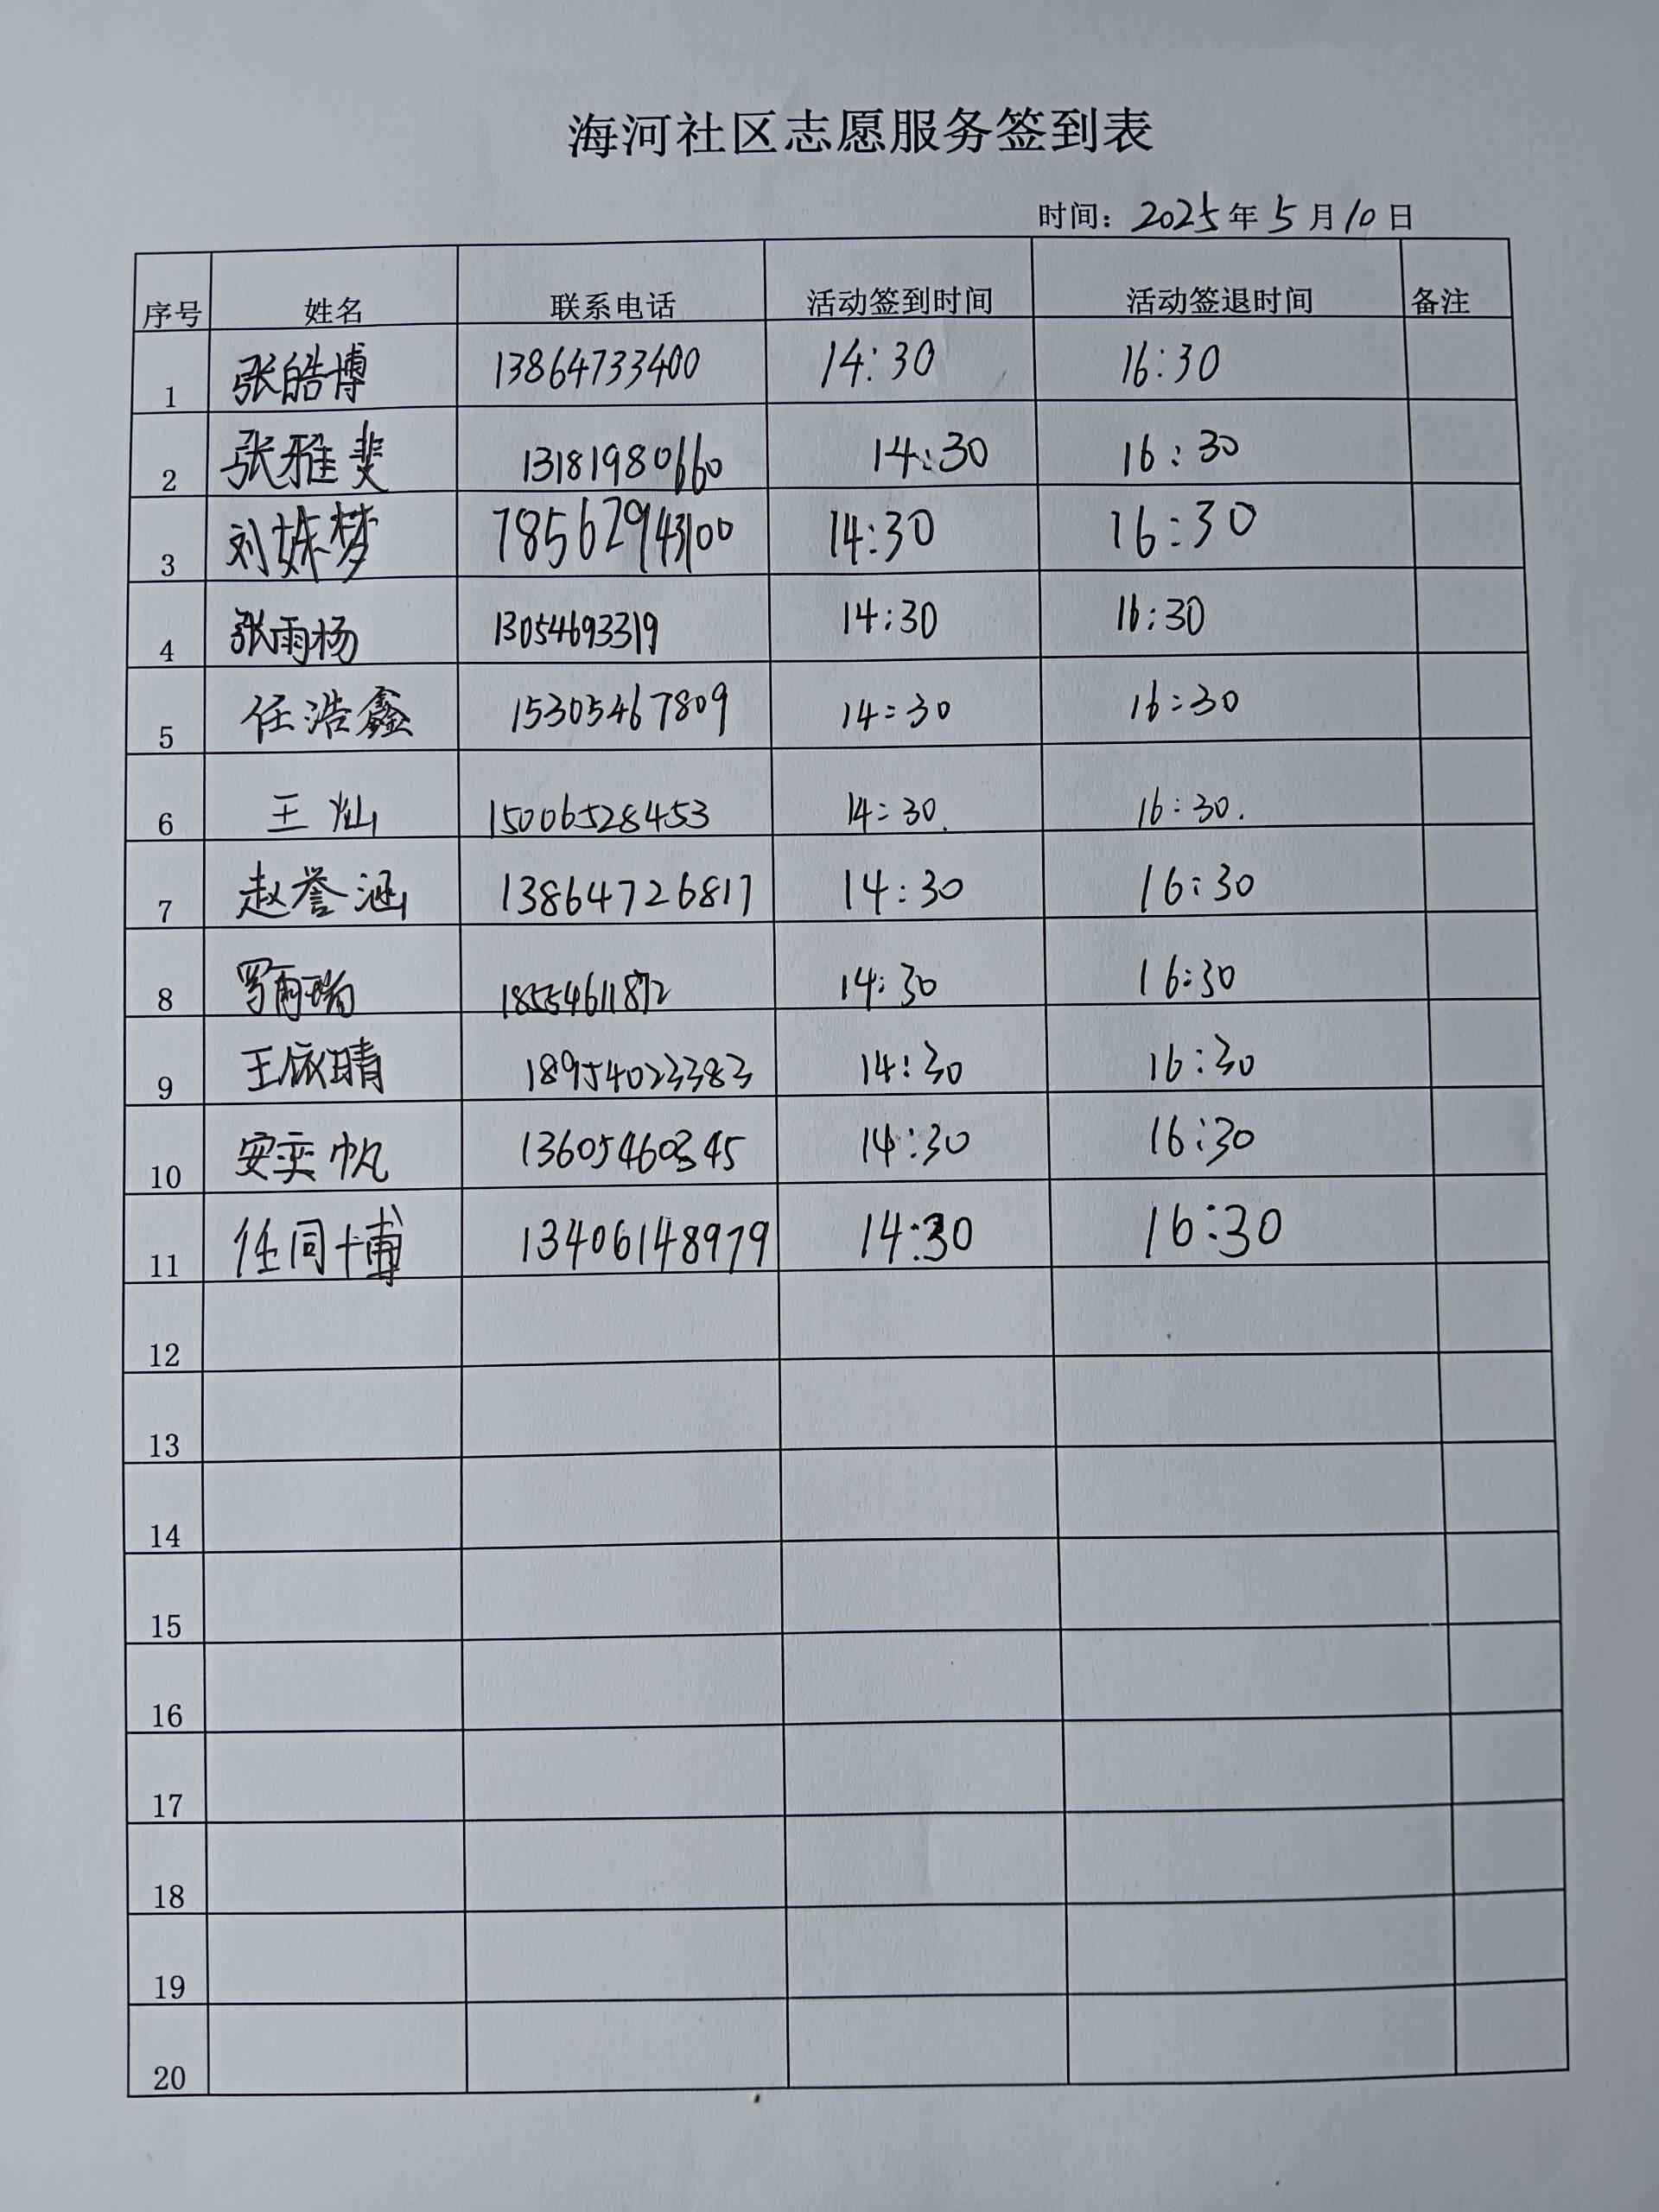 海河社区志愿服务签到表
时间：2025年5月10日
序号 姓名 联系电话 活动签到时间 活动签退时间 备注
1 张皓博 13864733400 14:30 16:30
2 张雅斐 13181980660 14:30 16:30
3 刘姝梦 78562943100 14:30 16:30
4 张雨杨 13054693319 14:30 16:30
5 任浩鑫 15305467809 14:30 16:30
6 王灿 15006528453 14:30. 16:30.
7 赵誉涵 13864726817 14:30 16:30
8 罗雨瑞 18554611872 14:30 16:30
9 王依晴 18954023383 14:30 16:30
10 安奕帆 13605460345 14:30 16:30
11 任同博 13406148979 14:30 16:30
12
13
14
15
16
17
18
19
20